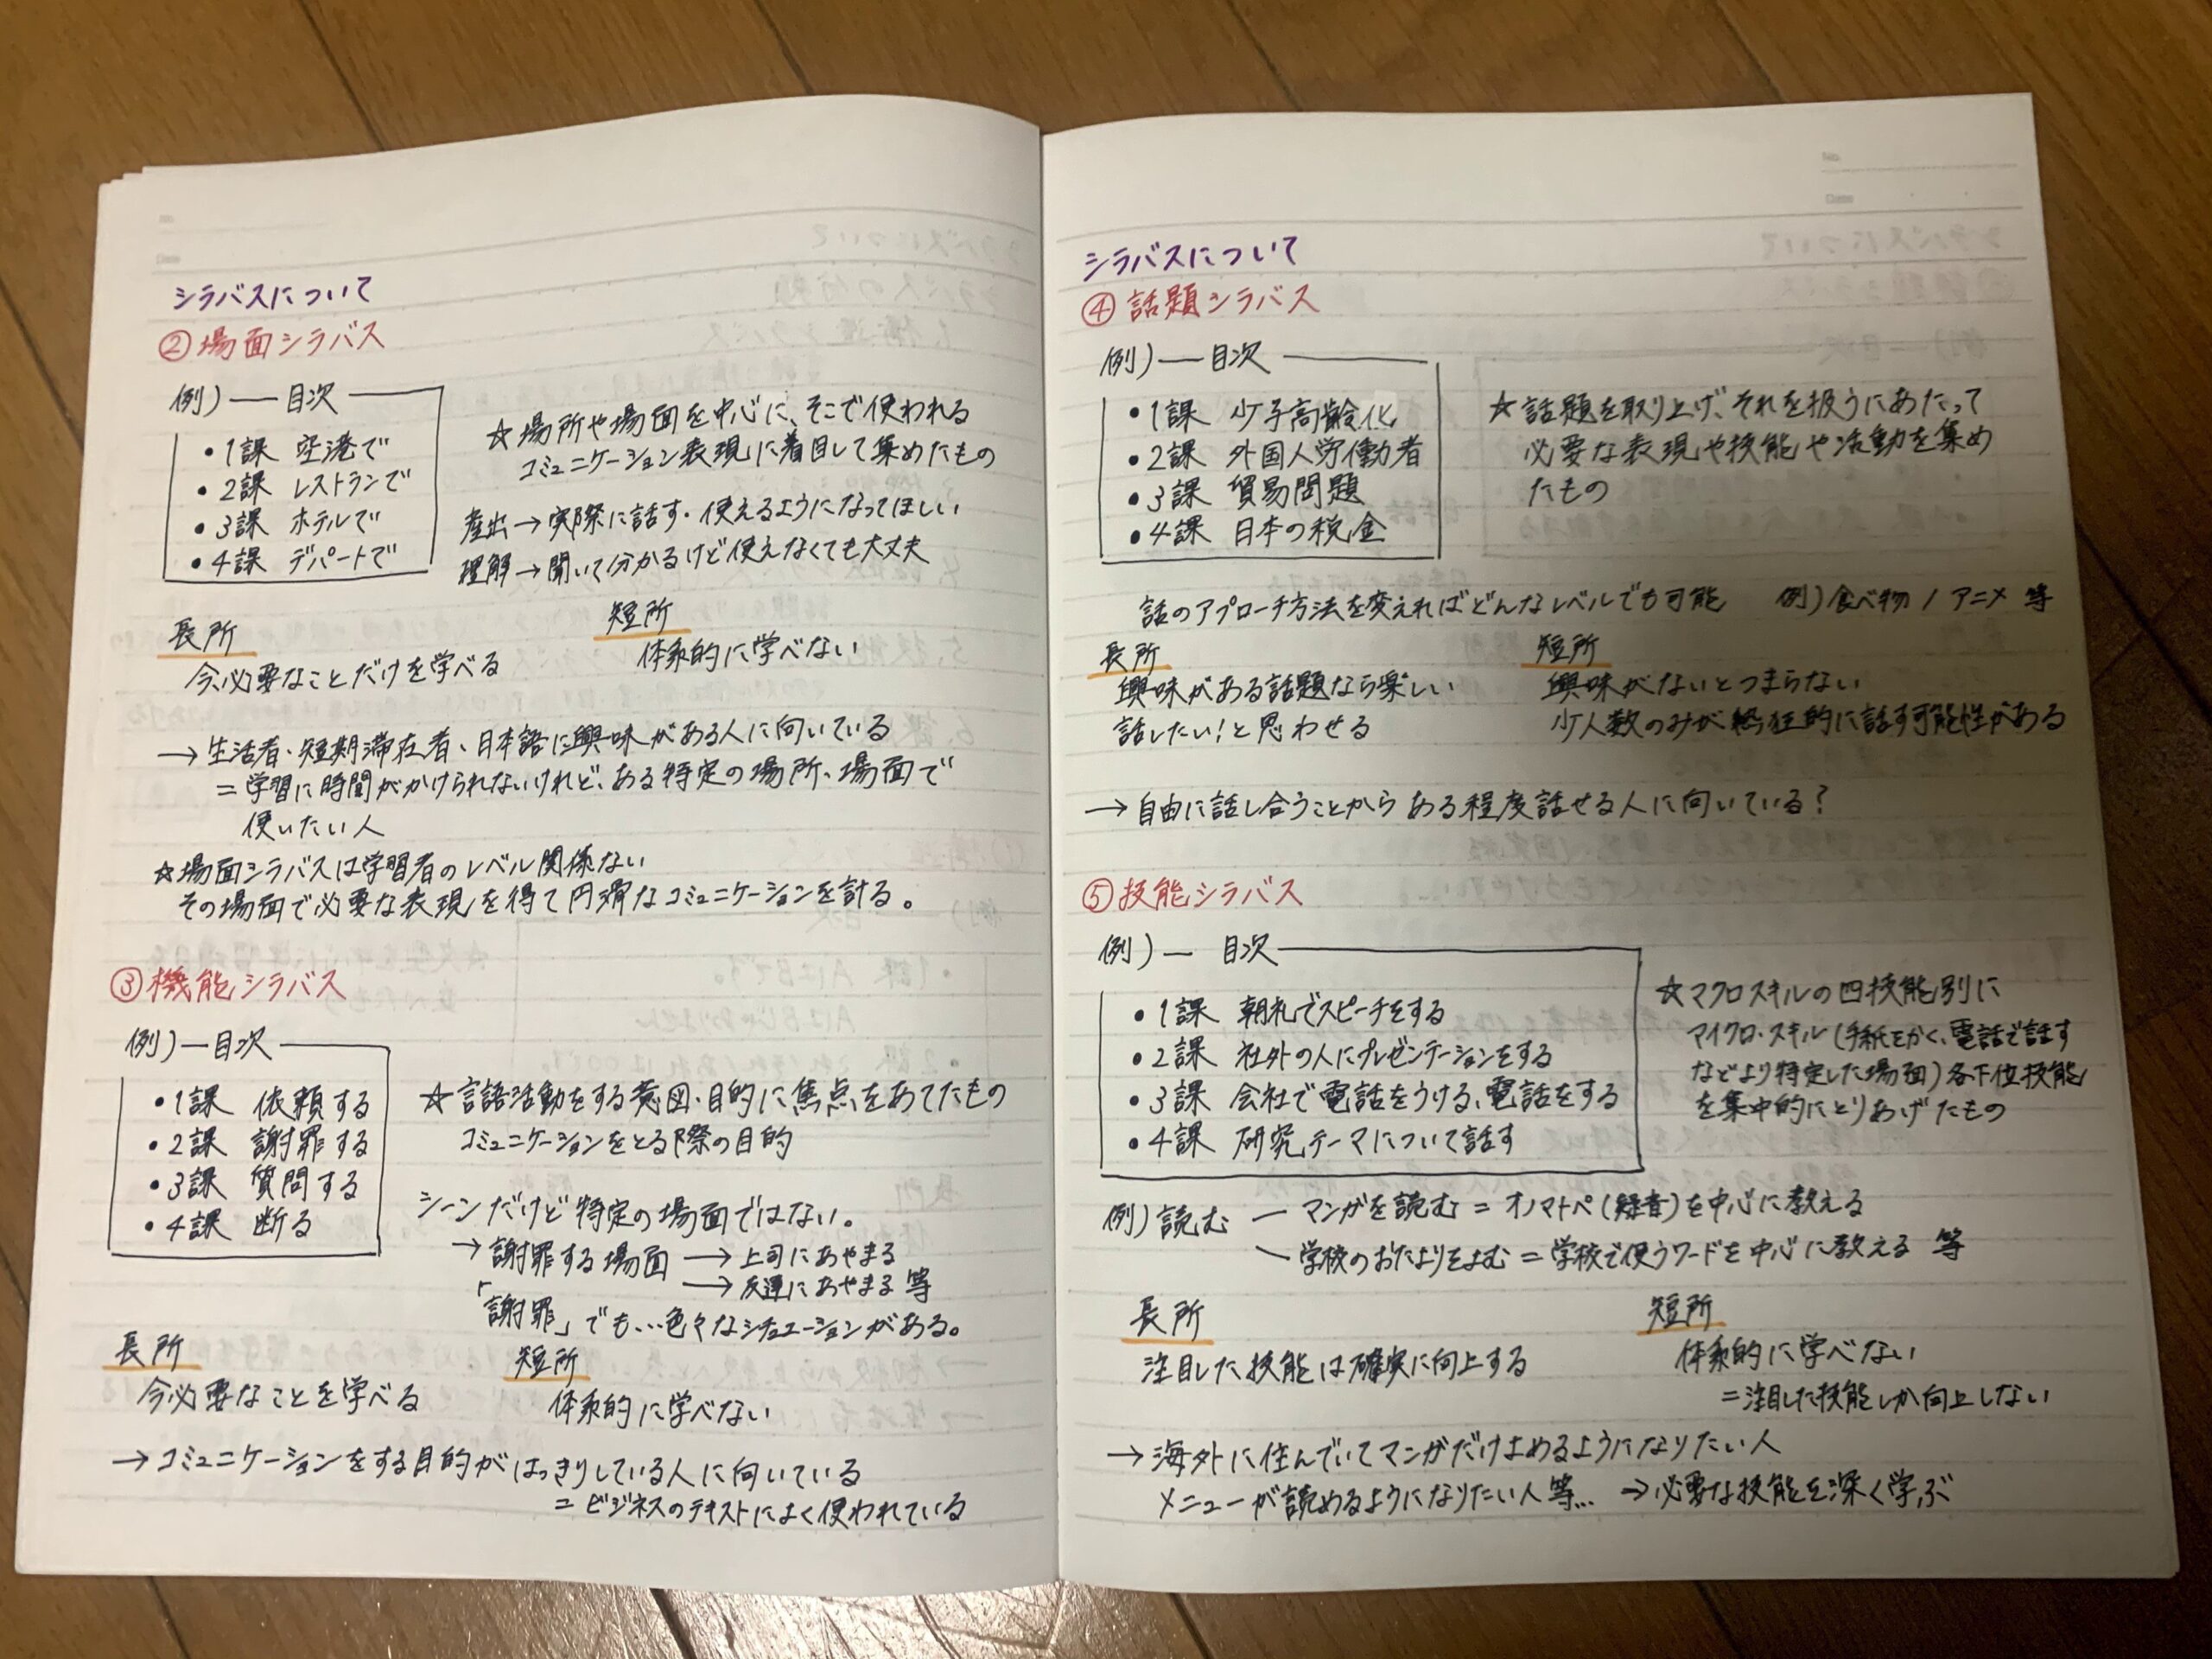 シラバスについて
②場面シラバス
例) 目次
・1課 空港で
・2課 レストランで
・3課 ホテルで
・4課 デパートで
☆場所や場面を中心に、そこで使われる
コミュニケーション表現に着目して集めたもの
産出→実際に話す・使えるようになってほしい
理解→聞いて分かるけど使えなくても大丈夫
長所
今必要なことだけを学べる
短所
体系的に学べない
→生活者・短期滞在者、日本語に興味がある人に向いている
=学習に時間がかけられないけれど、ある特定の場所、場面で
使いたい人
☆場面シラバスは学習者のレベル関係ない
その場面で必要な表現を得て円滑なコミュニケーションを計る。
③機能シラバス
例) 目次
・1課 依頼する
・2課 謝罪する
・3課 質問する
・4課 断る
☆言語活動をする意図・目的に焦点をあてたもの
コミュニケーションをとる際の目的
シーンだけど特定の場面ではない。
→謝罪する場面→上司にあやまる
→友達にあやまる 等
「謝罪」でも…色々なシチュエーションがある。
長所
今必要なことを学べる
短所
体系的に学べない
→コミュニケーションをする目的がはっきりしている人に向いている
=ビジネスのテキストによく使われている
No.
Date
シラバスについて
④話題シラバス
例) 目次
・1課 少子高齢化
・2課 外国人労働者
・3課 貿易問題
・4課 日本の税金
☆話題を取り上げ、それを扱うにあたって
必要な表現や技能や活動を集め
たもの
話のアプローチ方法を変えればどんなレベルでも可能 例)食べ物/アニメ 等
長所
興味がある話題なら楽しい
話したい!と思わせる
短所
興味がないとつまらない
少人数のみが熱狂的に話す可能性がある
→自由に話し合うことからある程度話せる人に向いている?
⑤技能シラバス
例) 目次
・1課 朝礼でスピーチをする
・2課 社外の人にプレゼンテーションをする
・3課 会社で電話をうける、電話をする
・4課 研究テーマについて話す
☆マクロスキルの四技能別に
マイクロ・スキル(手紙をかく、電話で話す
などより特定した場面)各下位技能
を集中的にとりあげたもの
例)読む ― マンガを読む=オノマトペ(擬音)を中心に教える
学校のおたよりをよむ=学校で使うワードを中心に教える 等
長所
注目した技能は確実に向上する
短所
体系的に学べない
=注目した技能しか向上しない
→海外に住んでいてマンガだけよめるようになりたい人
メニューが読めるようになりたい人等… →必要な技能を深く学ぶ